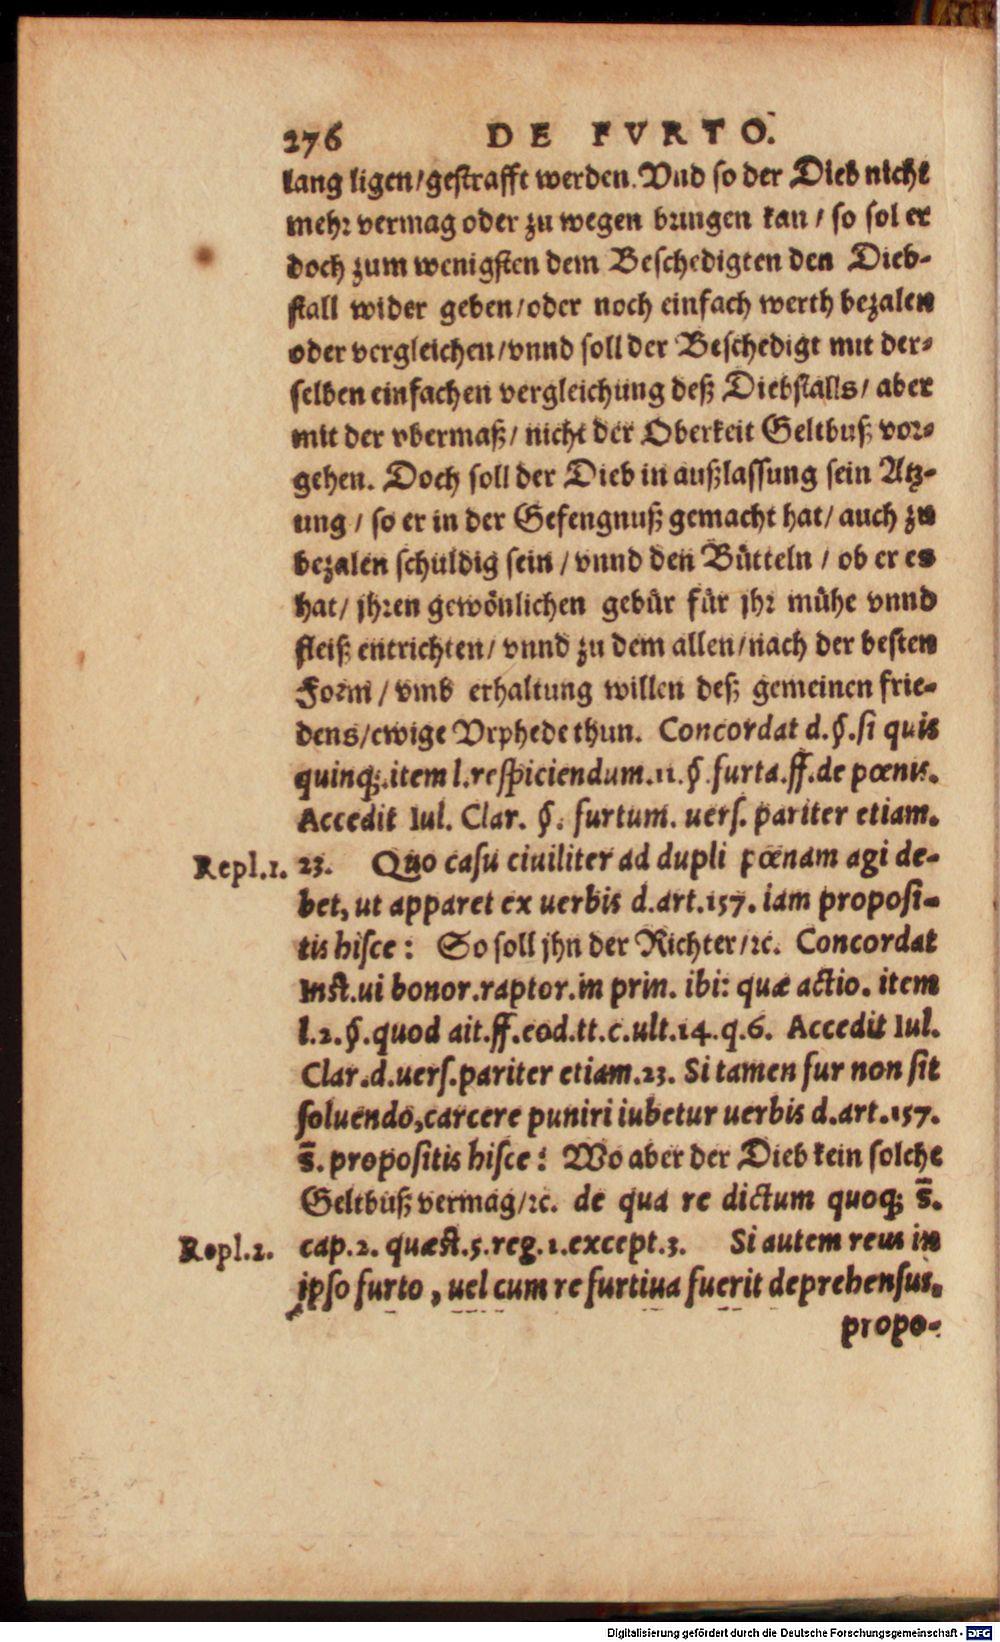 276 DE FVRTO.
lang ligen/gestrafft werden. Vnd so der Dieb nicht
mehr vermag oder zu wegen bringen kan / so sol er
doch zum wenigsten dem Beschedigten den Dieb-
stall wider geben/oder noch einfach werth bezalen
oder vergleichen/vnnd soll der Beschedigt mit der-
selben einfachen vergleichung deß Diebstalls/ aber
mit der vbermaß/ nicht der Oberkeit Geltbuß vor-
gehen. Doch soll der Dieb in außlassung sein Atz-
ung / so er in der Gefengnuß gemacht hat/ auch zu
bezalen schuldig sein / vnnd den Bütteln / ob er es
hat/ jhren gewönlichen gebür für jhr mühe vnnd
fleiß entrichten/ vnnd zu dem allen/nach der besten
Form / vmb erhaltung willen deß gemeinen frie-
dens/ewige Vrphede thun. Concordat d.§.si quis
quinq;.item l.respiciendum.11.§.furta.ff.de pœnis.
Accedit Iul. Clar. §. furtum. uers. pariter etiam.
Repl.1. 23. Quo casu ciuiliter ad dupli pœnam agi de-
bet, ut apparet ex uerbis d.art.157. iam proposi-
tis hisce: So soll jhn der Richter/ꝛc. Concordat
Inst.ui bonor.raptor.in prin. ibi: quæ actio. item
l.2.§.quod ait.ff.eod.tt.c.ult.14.q.6. Accedit Iul.
Clar.d.uers.pariter etiam.23. Si tamen fur non sit
soluendo,carcere puniri iubetur uerbis d.art.157.
s̄. propositis hisce: Wo aber der Dieb kein solche
Geltbuß vermag/ꝛc. de qua re dictum quoq; s̄.
Repl.2. cap.2. quæst.5.reg.1.except.3. Si autem reus in
ipso furto, uel cum re furtiua fuerit deprehensus,
propo-
Digitalisierung gefördert durch die Deutsche Forschungsgemeinschaft - DFG